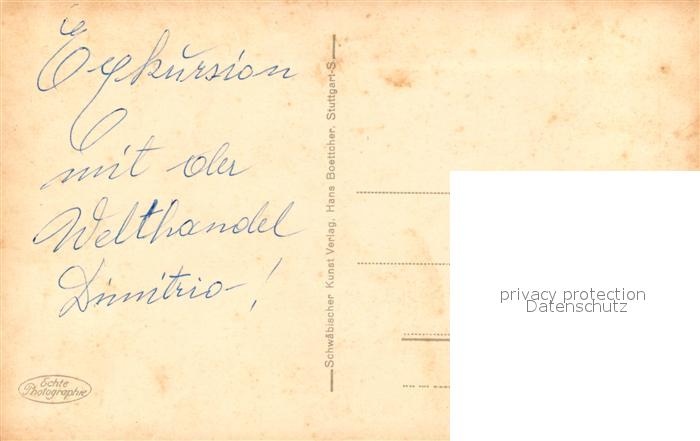 Exkursion
mit der
Welthandel
Dimitrio-!
Schwäbischer Kunst Verlag, Hans Boettcher, Stuttgart-S.
Echte
Photographie
privacy protection
Datenschutz